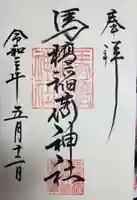 奉拝
馬橋稲荷神社
令和三年五月十二日